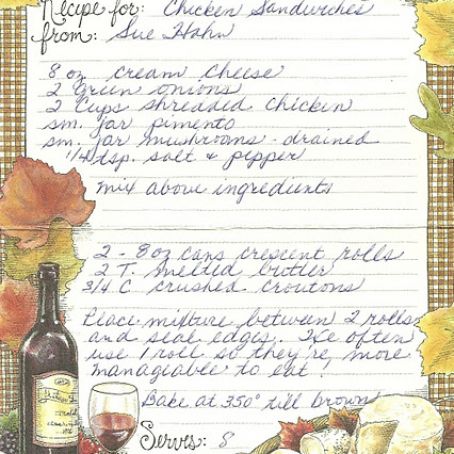 Recipe for: Chicken Sandwiches
from: Sue Hahn
8 oz cream cheese
2 Green onions
2 Cups shredded Chicken
sm. jar pimento
sm. jar mushrooms - drained
1/4 tsp. salt & pepper
mix above ingredients
2 - 8 oz cans crescent rolls
2 T. melted butter
3/4 C crushed croutons
Place mixture between 2 rolls
and seal edges. I've often
use 1 roll so they're more
manageable to eat!
Bake at 350° till brown
Serves: 8